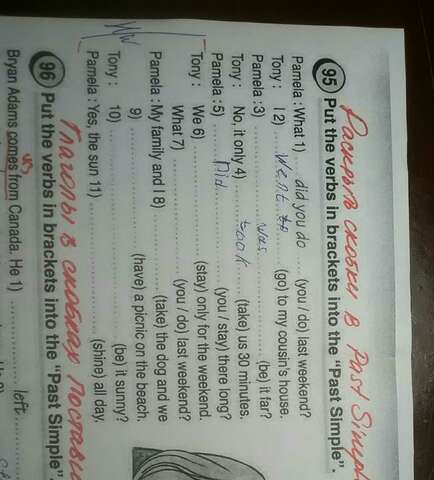 Раскрыть скобки в Past Simple
95 Put the verbs in brackets into the "Past Simple".
Pamela : What 1) did you do (you / do) last weekend?
Tony : I 2) went to (go) to my cousin's house.
Pamela : 3) was (be) it far?
Tony : No, it only 4) took (take) us 30 minutes.
Pamela : 5) Did (you / stay) there long?
Tony : We 6) (stay) only for the weekend.
What 7) (you / do) last weekend?
Pamela : My family and I 8) (take) the dog and we
9) (have) a picnic on the beach.
Tony : 10) (be) it sunny?
Pamela : Yes, the sun 11) (shine) all day.
Глаголы в скобках постави
96 Put the verbs in brackets into the "Past Simple".
Bryan Adams comes from Canada. He 1) left